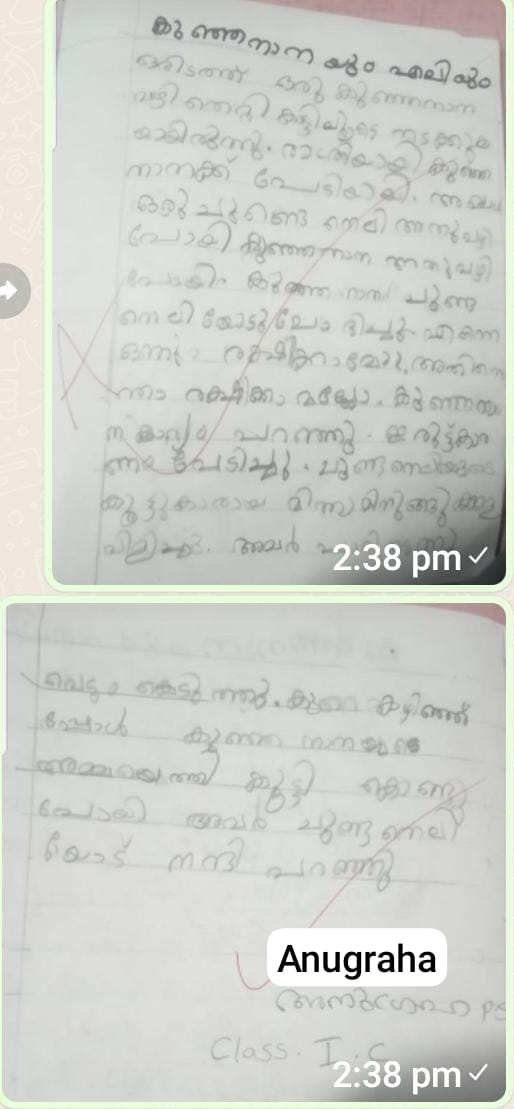 കുഞ്ഞനാന യും എലിയും
ഒരിടത്ത് ഒരു കുഞ്ഞനാന
വഴി തെറ്റി കട്ടിലൂടെ നടക്കുക
യായിരുന്നു. രാത്രിയായി കുഞ്ഞ
നാനക്ക് പേടിയായി.
ഒരു ചുണ്ടെ നെലി അതുവഴി
പോയി കുഞ്ഞനാന അതുവഴി
പോയി കുഞ്ഞ നാന ചുണ്ട
നെലി യോടു ചോ ദിച്ചു. എന്നെ
ഒന്നു രക്ഷിക്കാമോ?, അതിനെ
ന്താ രക്ഷിക്കാ മല്ലോ. കുഞ്ഞനാ
ന പറഞ്ഞു. ഇരുട്ട്കാ
ണ്ട പേടിച്ചു. ചുണ്ടനെലിയുടെ
കൂട്ടുകാരായ മിന്നാമിനുങ്ങുക്കളെ
വിളിച്ചു. അവർ
വെട്ടം കെടുത്തു. കുറെ കഴിഞ്ഞ്
പ്പോൾ കുഞ്ഞ നാനയുടെ
അമ്മയെത്തി കൂട്ടി കൊണ്ടു
പോയി അവർ ചുണ്ടനെലി
യോട് നന്ദി പറഞ്ഞു
Anugraha
അനുഗ്രഹ P.S
Class. I. C
2:38 pm
2:38 pm